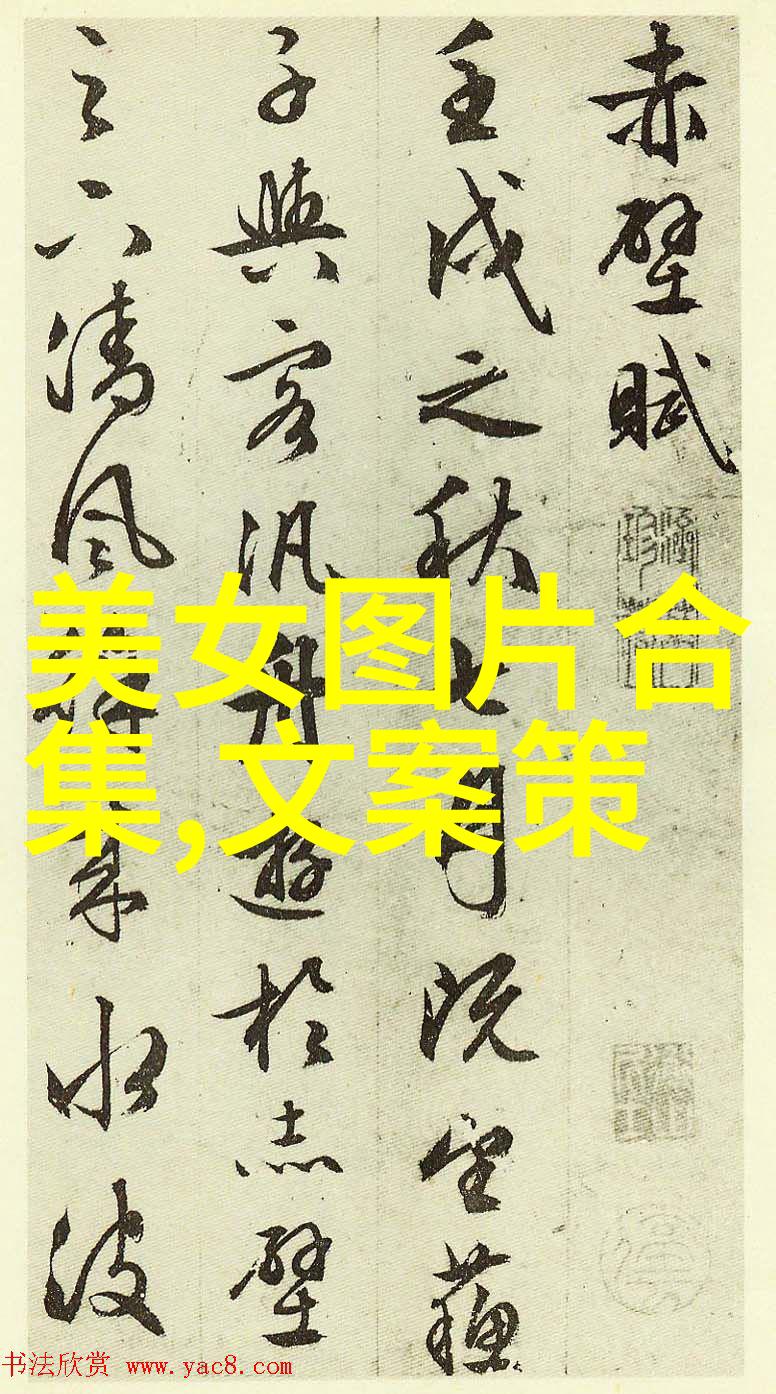 赤壁賦
壬戌之秋七月既望蘇
子與客汎舟遊於赤壁
之下清風徐來水波
美女图片合
集,文案策
书法欣赏 www.yac8.com